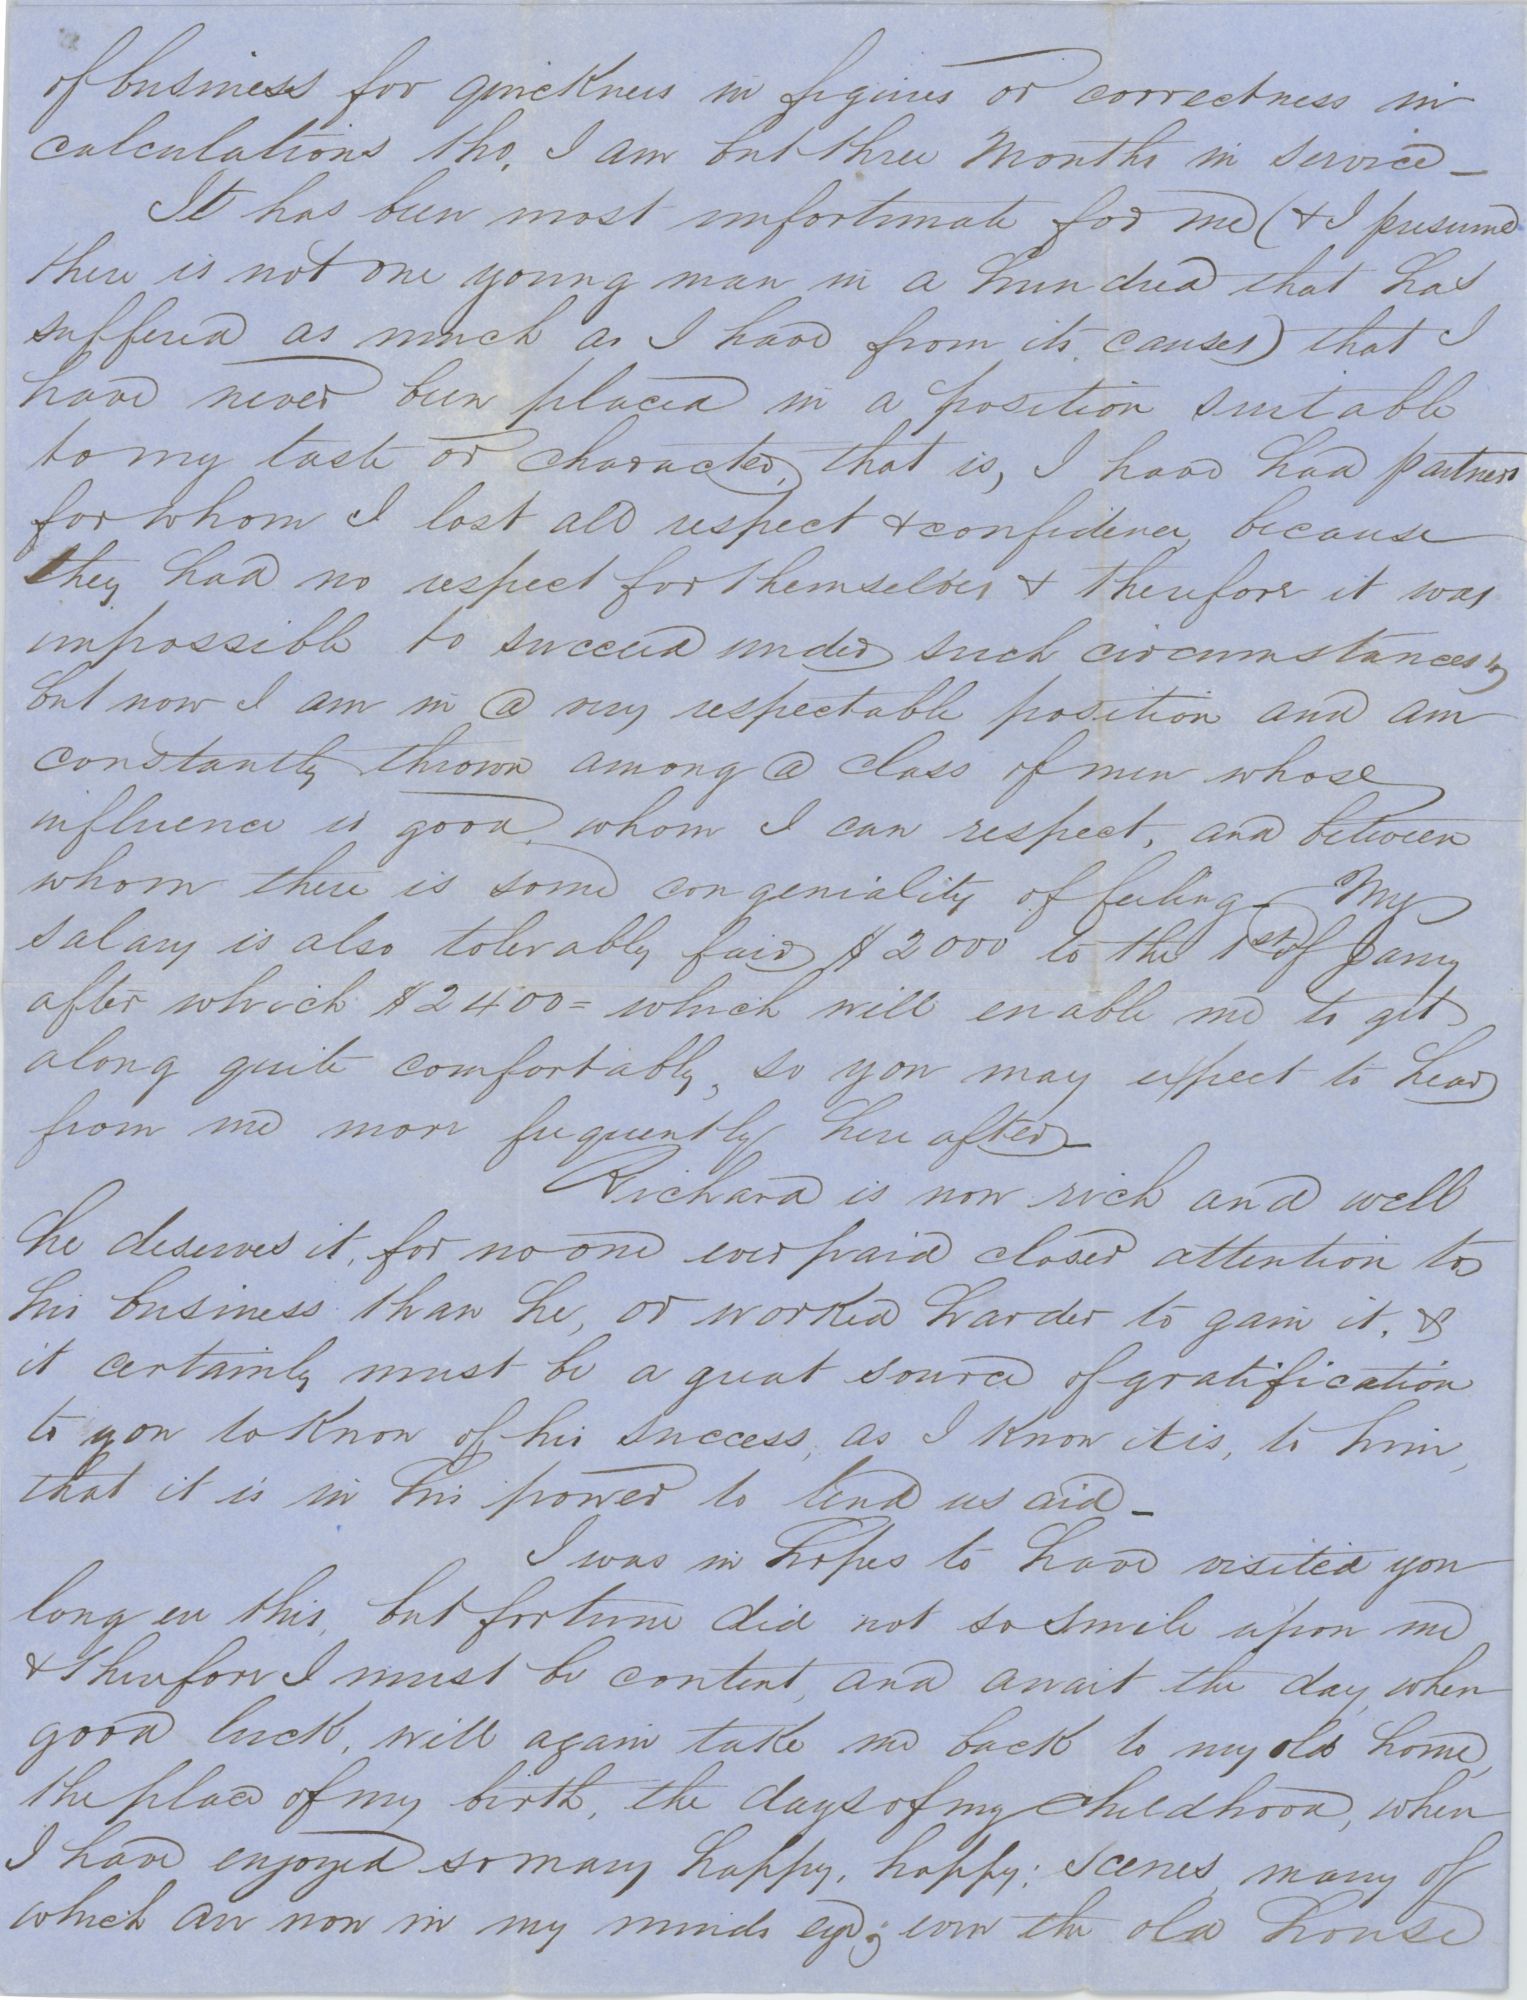 of business for quickness in figures or correctness in
calculations tho, I am but three months in service –
It has been most unfortunate for me (& I presume
there is not one young man in a hundred that has
suffered as much as I have from its causes) that I
have never been placed in a position suitable
to my taste or character, that is, I have had partners
for whom I lost all respect & confidence, because
they had no respect for themselves & therefore it was
impossible to succeed under such circumstances,
but now I am in a very respectable position and am
constantly thrown among a class of men whose
influence is good, whom I can respect, and between
whom there is some congeniality of feeling – My
salary is also tolerably fair $2000 to the 1st of Jany
after which $2400= which will enable me to get
along quite comfortably, so you may expect to hear
from me more frequently here after –
Richard is now rich and well
he deserves it, for no one ever paid closer attention to
his business than he, or worked harder to gain it, &
it certainly must be a great source of gratification
to you to know of his success, as I know it is, to him,
that it is in his power to lend us aid –
I was in hopes to have visited you
long ere this, but fortune did not so smile upon me
& therefore I must be content, and await the day, when
good luck, will again take me back to my old home,
the place of my birth, the days of my childhood, when
I have enjoyed so many happy, happy; scenes, many of
which are now in my minds eye; even the old house